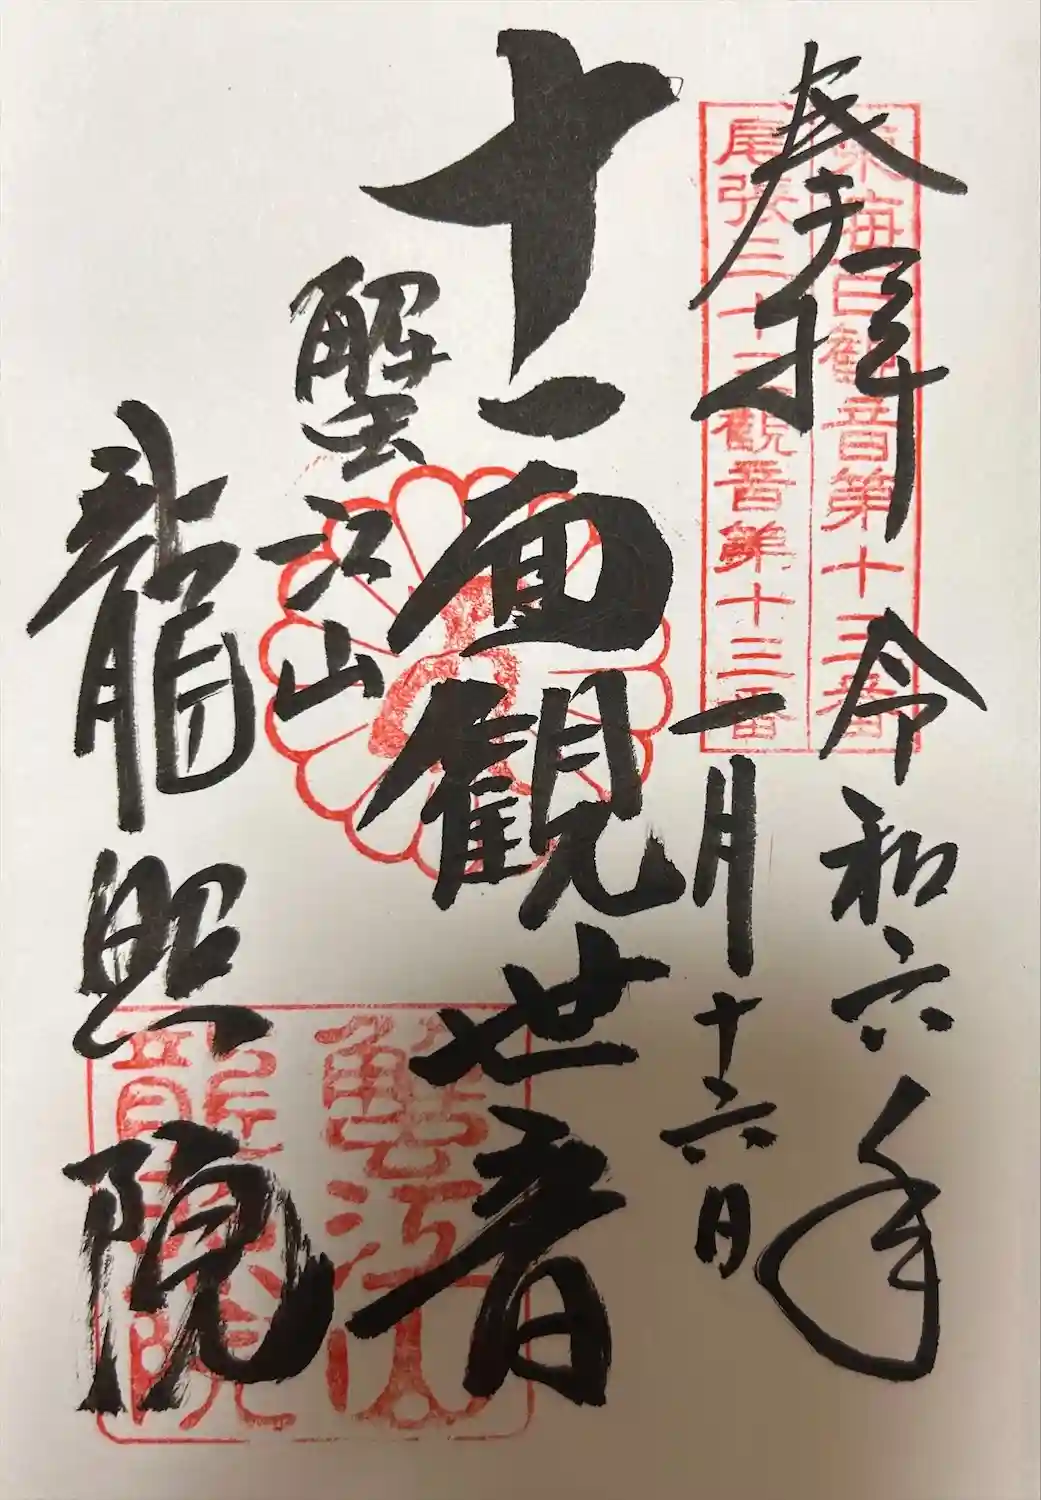 奉拝
東海百観音第十三番
尾張三十三観音第十三番
令和六年
一月十六日
十一面観世音
蟹江山
龍照院
蟹江山
龍照院